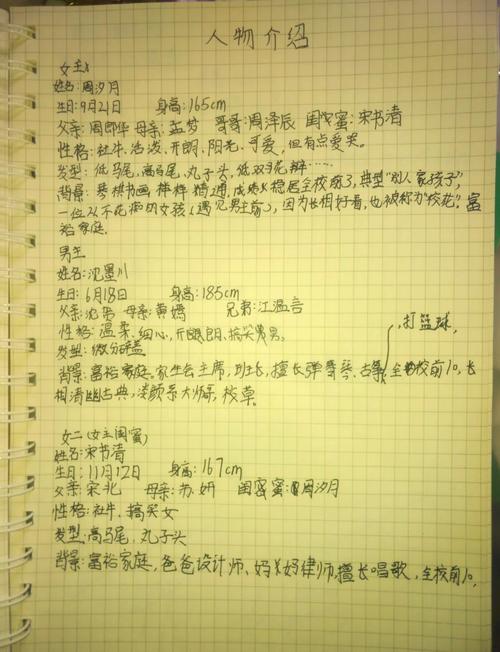 人物介绍
女主
姓名:周汐月
生日:9月21日 身高:165cm
父亲:周郎华 母亲:孟梦 哥哥:周泽辰 闺蜜:宋书清
性格:社牛、活泼、开朗、阳光、可爱,但有点爱哭。
发型:低马尾,高马尾,丸子头,低双麻花辫……
背景:琴棋书画样样精通,成绩稳居全校前3,典型“别人家孩子”,
一位从不花痴的女孩(遇见男主前),因为长相好看,也被称为“校花”。富
裕家庭。
男主
姓名:沈墨川
生日:6月18日 身高:185cm
父亲:沈 母亲:黄嫣 兄弟:江温言
性格:温柔、细心,开朗,搞笑男。
,打篮球,
发型:微分碎盖
背景:富裕家庭,学生会主席,班长,擅长弹琴、古筝 全校前10,长
相清幽古典,淡颜系大帅哥,校草。
女二(女主闺蜜)
姓名:宋书清
生日:11月12日 身高:167cm
父亲:宋北 母亲:苏妍 闺蜜:周汐月
性格:社牛、搞笑女
发型:高马尾,丸子头
背景:富裕家庭,爸爸设计师、妈妈律师,擅长唱歌,全校前10,